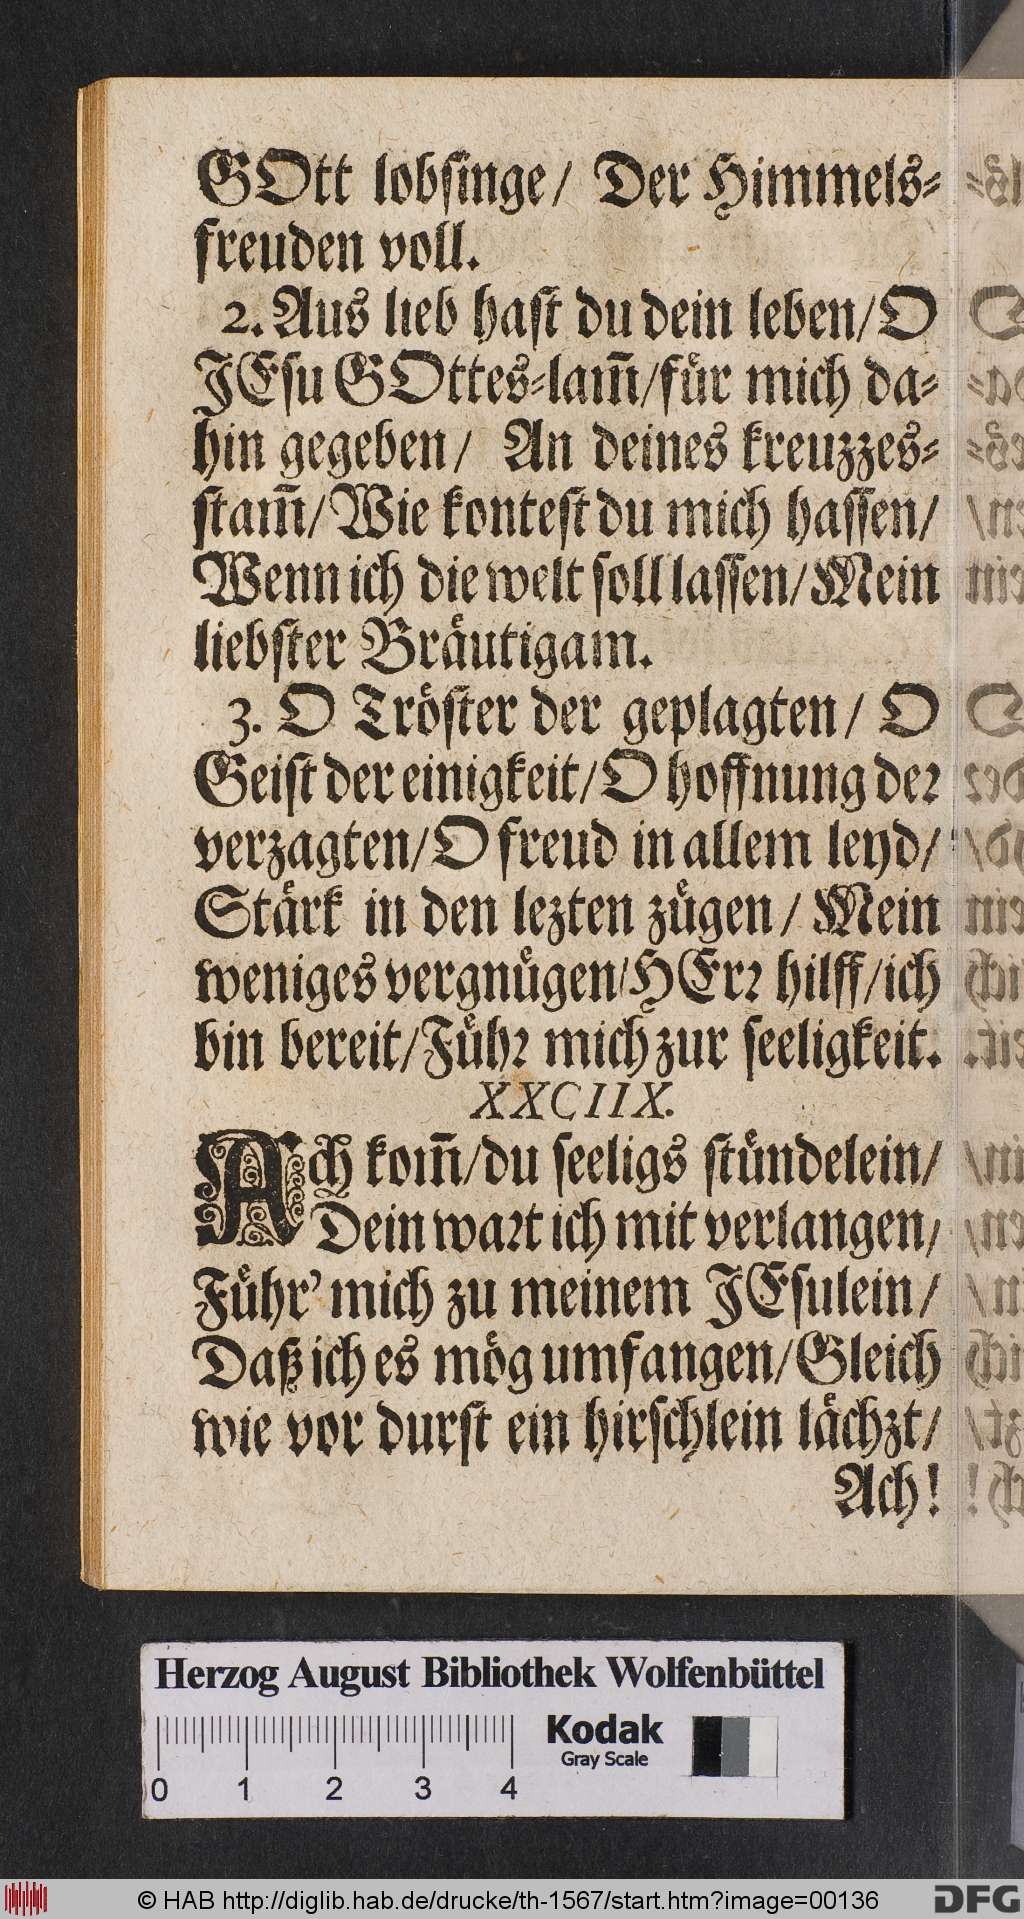 GOtt lobsinge/ Der Himmels-
freuden voll.
2. Aus lieb hast du dein leben/ O
JEsu GOttes-lam̃/ für mich da-
hin gegeben/ An deines kreuzzes-
stam̃/ Wie kontest du mich hassen/
Wenn ich die welt soll lassen/ Mein
liebster Bräutigam.
3. O Tröster der geplagten/ O
Geist der einigkeit/ O hoffnung der
verzagten/ O freud in allem leyd/
Stärk in den lezten zügen/ Mein
weniges vergnügen/ HErr hilff/ ich
bin bereit/ Führ mich zur seeligkeit.
XXCIIX.
Ach kom̃/ du seeligs stündelein/
Dein wart ich mit verlangen/
Führ' mich zu meinem JEsulein/
Daß ich es mög umfangen/ Gleich
wie vor durst ein hirschlein lächzt/
Ach!
Herzog August Bibliothek Wolfenbüttel
Kodak
Gray Scale
0 1 2 3 4
© HAB http://diglib.hab.de/drucke/th-1567/start.htm?image=00136
DFG